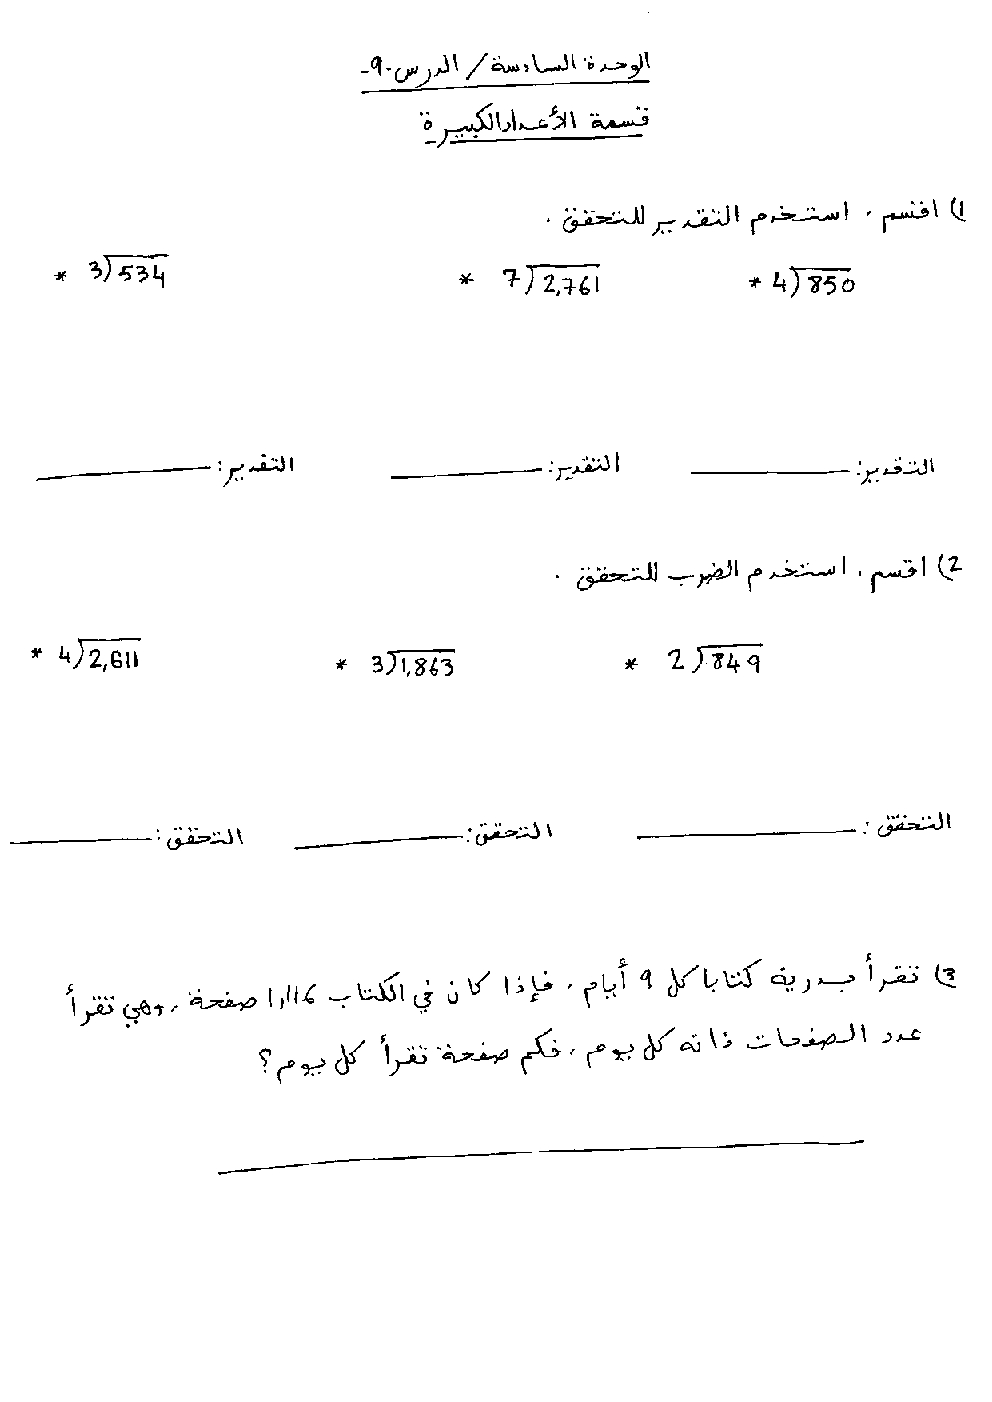 الوحدة السادسة / الدرس -9-
قسمة الأعداد الكبيرة
1) اقسم، استخدم التقدير للتحقق.
* 4)850 * 7)2,761 * 3)534
التقدير: التقدير: التقدير:
2) اقسم، استخدم الضرب للتحقق.
* 2)849 * 3)1,863 * 4)2,611
التحقق: التحقق: التحقق:
3) تقرأ بدرية كتابا كل 9 أيام، فإذا كان في الكتاب 1,116 صفحة، وهي تقرأ
عدد الصفحات ذاته كل يوم، فكم صفحة تقرأ كل يوم؟